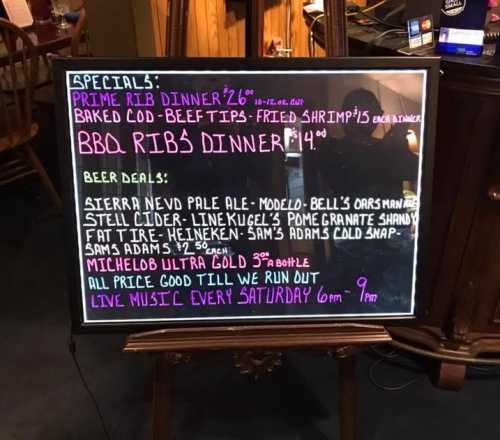 SPECIALS:
PRIME RIB DINNER $26.00 10-12.OZ. CUT
BAKED COD - BEEF TIPS - FRIED SHRIMP $15 EACH DINNER
BBQ RIBS DINNER $14.00
BEER DEALS:
SIERRA NEVD PALE ALE - MODELO - BELL'S OARSMAN ALE
STELL CIDER - LINEKUGEL'S POMEGRANATE SHANDY
FAT TIRE - HEINEKEN - SAM'S ADAMS COLD SNAP -
SAMS ADAMS $2.50 EACH
MICHELOB ULTRA GOLD 3.00 A BOTTLE
ALL PRICE GOOD TILL WE RUN OUT
LIVE MUSIC EVERY SATURDAY 6PM - 9PM